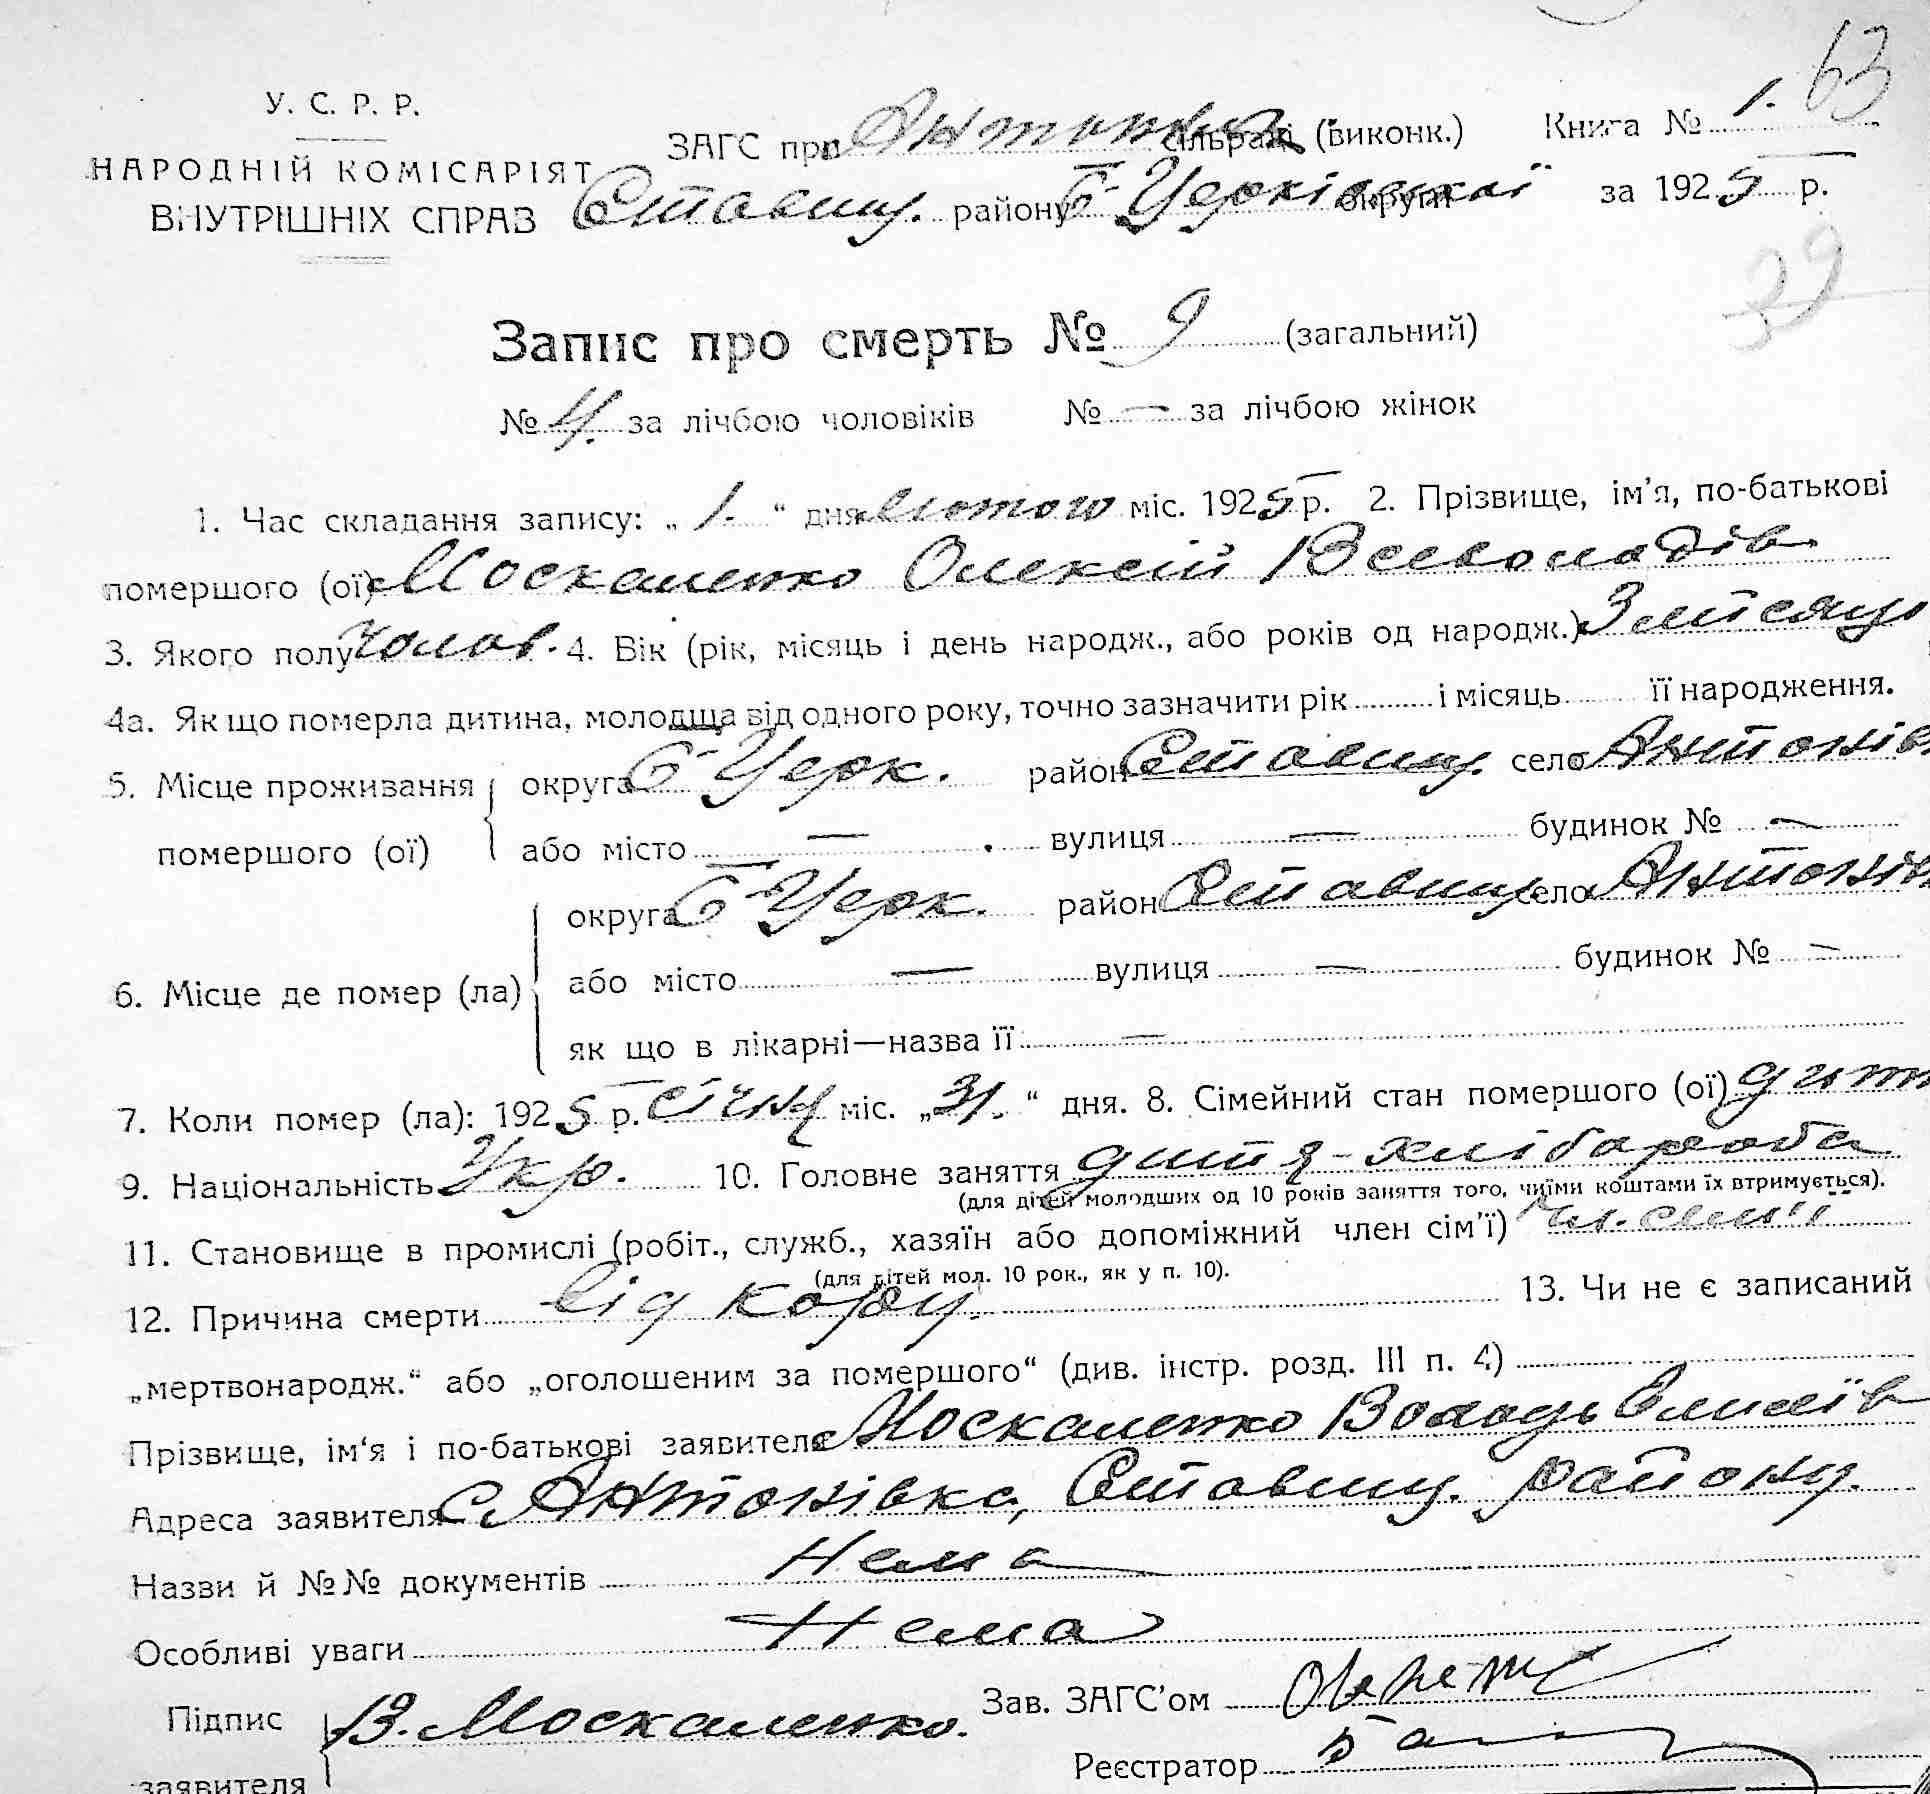 63
У. С. Р. Р.
НАРОДНІЙ КОМІСАРІЯТ
ВНУТРІШНІХ СПРАВ
ЗАГС при Антонів сільраді (виконк.) Книга № 1.
Ставищ. району Б-Церківської округи за 1925 р.
39
Запис про смерть № 9 (загальний)
№ 4. за лічбою чоловіків № — за лічбою жінок
1. Час складання запису: „ 1. “ дня лютого міс. 1925 р. 2. Прізвище, ім’я, по-батькові
помершого (ої) Москаленко Олексій Всеволодів
3. Якого полу чолов. 4. Вік (рік, місяць і день народж., або років од народж.) 3 місяці
4а. Як що померла дитина, молодща від одного року, точно зазначити рік і місяць її народження.
5. Місце проживання помершого (ої) округа Б-Церк. район Ставищ. село Антонів
або місто — вулиця — будинок № —
6. Місце де помер (ла) округа Б-Церк. район Ставищ. село Антонів
або місто — вулиця — будинок № —
як що в лікарні—назва її —
7. Коли помер (ла): 1925 р. січня міс. „31.“ дня. 8. Сімейний стан помершого (ої) дит
9. Національність Укр. 10. Головне заняття дитя-хлібороба
(для дітей молодших од 10 років заняття того, чиїми коштами їх втримується).
11. Становище в промислі (робіт., служб., хазяїн або допоміжний член сім’ї) чл. сем’ї
(для дітей мол. 10 рок., як у п. 10).
12. Причина смерти від кору. 13. Чи не є записаний
„мертвонародж.“ або „оголошеним за помершого“ (див. інстр. розд. III п. 4)
Прізвище, ім‘я і по-батькові заявителя Москаленко Володь
Адреса заявителя с Антонівка, Ставищ. району.
Назви й №№ документів Нема
Особливі уваги Нема
Підпис заявителя В. Москаленко. Зав. ЗАГС’ом
Реєстратор